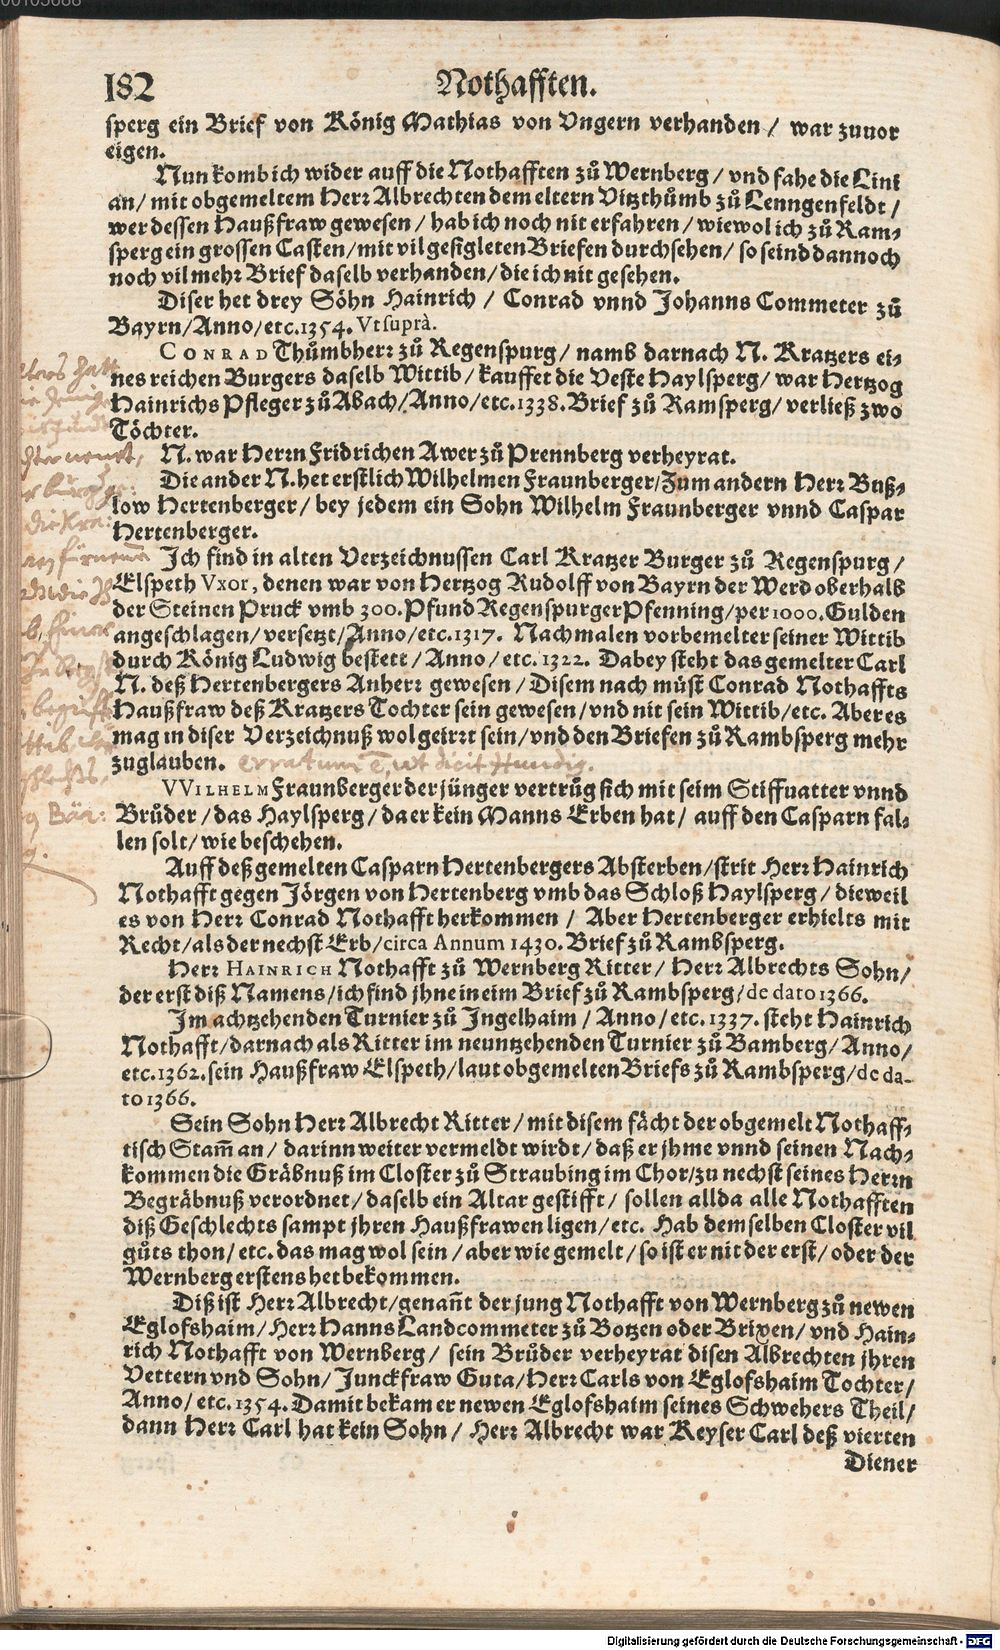 182 Nothafften.
sperg ein Brief von König Mathias von Vngern verhanden / war zuuor
eigen.
Nun komb ich wider auff die Nothafften zů Wernberg / vnd fahe die Lini
an / mit obgemeltem Herꝛ Albrechten dem eltern Vitzthůmb zů Lenngenfeldt /
wer dessen Haußfraw gewesen / hab ich noch nit erfahren / wiewol ich zů Ram-
sperg ein grossen Casten / mit vil gesigleten Briefen durchsehen / so seind dannoch
noch vil mehꝛ Brief daselb verhanden / die ich nit gesehen.
Diser het drey Söhn Hainrich / Conrad vnnd Johanns Commeter zů
Bayrn / Anno / etc. 1354. Vt suprà.
CONRAD Thůmbherꝛ zů Regenspurg / namb darnach N. Kratzers ei-
nes reichen Burgers daselb Wittib / kauffet die Veste Haylsperg / war Hertzog
Hainrichs Pfleger zů Abach / Anno / etc. 1338. Brief zů Ramsperg / verließ zwo
Töchter.
N. war Herrn Fridrichen Awer zů Prennberg verheyrat.
Die ander N. het erstlich Wilhelmen Fraunberger / Zum andern Herꝛ Buß-
low Hertenberger / bey jedem ein Sohn Wilhelm Fraunberger vnnd Caspar
Hertenberger.
Ich find in alten Verzeichnussen Carl Kratzer Burger zů Regenspurg /
Elspeth Vxor, denen war von Hertzog Rudolff von Bayrn der Werd oberhalb
der Steinen Pruck vmb 300. Pfund Regenspurger Pfenning / per 1000. Gulden
angeschlagen / versetzt / Anno / etc. 1317. Nachmalen vorbemelter seiner Wittib
durch König Ludwig bestett / Anno / etc. 1322. Dabey steht das gemelter Carl
N. deß Hertenbergers Anherꝛ gewesen / Disem nach müst Conrad Nothaffts
Haußfraw deß Kratzers Tochter sein gewesen / vnd nit sein Wittib / etc. Aber es
mag in diser Verzeichnuß wol geirꝛt sein / vnd den Briefen zů Rambsperg mehr
zuglauben. Erratum ē, ut dicit Hundig.
VVILHELM Fraunberger der jünger vertrůg sich mit seim Stiffuatter vnnd
Brůder / das Haylsperg / da er kein Manns Erben hat / auff den Casparn fal-
len solt / wie beschehen.
Auff deß gemelten Casparn Hertenbergers Absterben / strit Herꝛ Hainrich
Nothafft gegen Jörgen von Hertenberg vmb das Schloß Haylsperg / dieweil
es von Herꝛ Conrad Nothafft herkommen / Aber Hertenberger erhielts mit
Recht / als der nechst Erb / circa Annum 1430. Brief zů Rambsperg.
Herꝛ HAINRICH Nothafft zů Wernberg Ritter / Herꝛ Albrechts Sohn /
der erst diß Namens / ich find jhne in eim Brief zů Rambsperg / de dato 1366.
Im achtzehenden Turnier zů Ingelhaim / Anno / etc. 1337. steht Hainrich
Nothafft / darnach als Ritter im neuntzehenden Turnier zů Bamberg / Anno /
etc. 1362. sein Haußfraw Elspeth / laut obgemelten Briefs zů Rambsperg / de da-
to 1366.
Sein Sohn Herꝛ Albrecht Ritter / mit disem fächt der obgemelt Nothaff-
tisch Stam̃ an / darinn weiter vermeldt wirdt / daß er jhme vnnd seinen Nach-
kommen die Gräbnuß im Closter zů Straubing im Chor / zu nechst seines Herrn
Begräbnuß verordnet / daselb ein Altar gestifft / sollen allda alle Nothafften
diß Geschlechts sampt jhren Haußfrawen ligen / etc. Hab demselben Closter vil
gůts thon / etc. das mag wol sein / aber wie gemelt / so ist er nit der erst / oder der
Wernberg erstens het bekommen.
Diß ist Herꝛ Albrecht / genañt der jung Nothafft von Wernberg zů newen
Eglofshaim / Herꝛ Hanns Landcommeter zů Botzen oder Brixen / vnd Hain-
rich Nothafft von Wernberg / sein Brůder verheyrat disen Albrechten jhren
Vettern vnd Sohn / Junckfraw Guta / Herꝛ Carls von Eglofshaim Tochter /
Anno / etc. 1354. Damit bekam er newen Eglofshaim seines Schwehers Theil /
dann Herꝛ Carl hat kein Sohn / Herꝛ Albrecht war Keyser Carl deß vierten
Diener
Digitalisierung gefördert durch die Deutsche Forschungsgemeinschaft - DFG